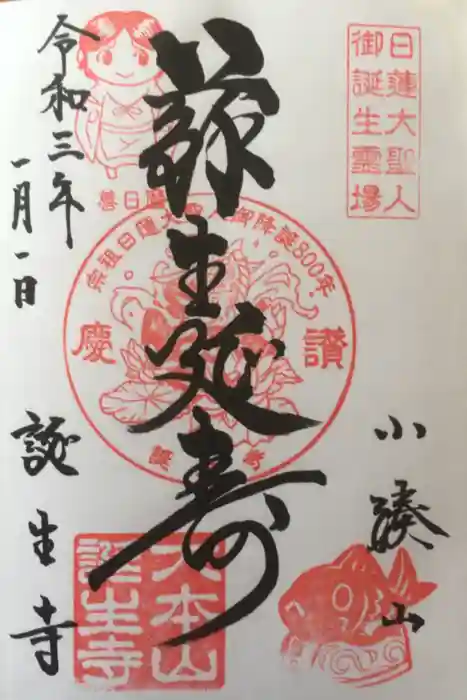 日蓮大聖人
御誕生霊場
蘇生延寿
小湊山
令和三年
一月一日
誕生寺
善日麿
宗祖日蓮大聖人御降誕800年
慶讃
大本山
誕生寺